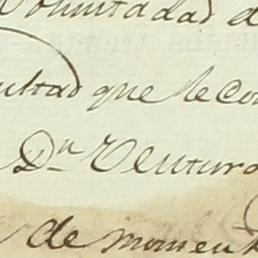 Voluntad d
ultad que le Co
Dn Ventura
de momen